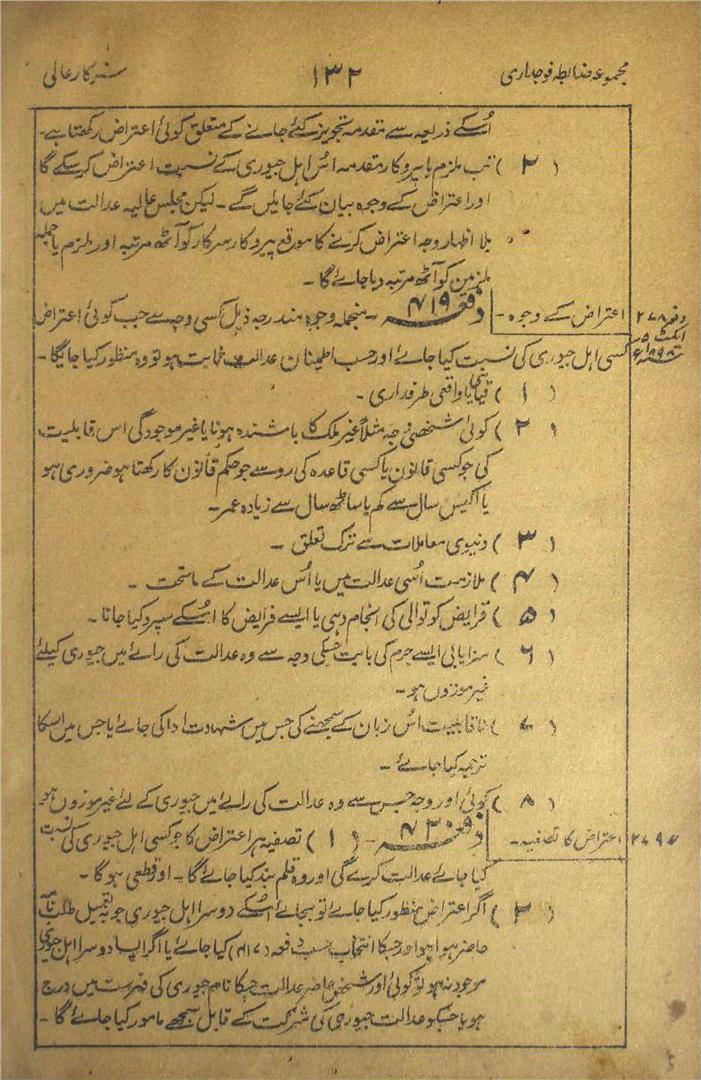 مجموعہ ضابطہ فوجداری ۱۳۲ سرکار عالی
اُسکے ذریعہ سے مقدمہ تجویز کئے جانے کے متعلق کوئی اعتراض رکھتا ہے۔
(۲) تب ملزم یا پیروکار مقدمہ اُس اہل جیوری کے نسبت اعتراض کرسکے گا
اور اعتراض کے وجوہ بیان کئے جائیں گے۔ لیکن مجلس عالیہ عدالت میں
بلا اظہار وجہ اعتراض کرنے کا موقع پیروکار سرکار کو آٹھ مرتبہ اور ملزم یا جملہ
ملزمین کو آٹھ مرتبہ دیا جائے گا۔
دفعہ ۲۷۸ ایکٹ ۵ ۱۸۹۸ء
اعتراض کے وجوہ۔ دفعہ ۴۱۹۔ منجملہ وجوہ مندرجہ ذیل کسی وجہ سے جب کوئی اعتراض
کسی اہل جیوری کی نسبت کیا جائے اور حسب اطمینان عدالت ثابت ہو تو وہ منظور کیا جائیگا۔
(۱) قیاسی یا واقعی طرفداری۔
(۲) کوئی شخصی وجہ مثلاً غیر ملک کا باشندہ ہونا یا غیر موجودگی اس قابلیت
کی جو کسی قانون یا کسی قاعدہ کی رو سے جو حکم قانون کا رکھتا ہو ضروری ہو
یا اکیس سال سے کم یا ساٹھ سال سے زیادہ عمر۔
(۳) دنیوی معاملات سے ترک تعلق۔
(۴) ملازمت اُسی عدالت میں یا اُس عدالت کے ماتحت۔
(۵) فرایض کوتوالی کی انجام دہی یا ایسے فرایض کا اُسکے سپرد کیا جانا۔
(۶) سزایابی ایسے جرم کی بابت جسکی وجہ سے وہ عدالت کی رائے میں جیوری کیلئے
غیر موزوں ہو۔
(۷) ناقابلیت اُس زبان کے سمجھنے کی جس میں شہادت ادا کی جائے یا جس میں اسکا
ترجمہ کیا جائے۔
(۸) کوئی اور وجہ جس سے وہ عدالت کی رائے میں جیوری کے لئے غیر موزوں ہو
۲۷۹
اعتراض کا تصفیہ۔ دفعہ ۴۲۰۔ (۱) تصفیہ ہر اعتراض کا جو کسی اہل جیوری کی نسبت
کیا جائے عدالت کرے گی اور وہ قلم بند کیا جائے گا۔ اور قطعی ہوگا۔
(۲) اگر اعتراض منظور کیا جائے تو بجائے اُسکے دوسرا اہل جیوری جو بہ تعمیل طلب نامہ
حاضر ہوا ہو اور جسکا انتخاب حسب دفعہ (۴۱۷) کیا جائے یا اگر ایسا دوسرا اہل جیوری
موجود نہ ہو تو کوئی اور شخص حاضر عدالت جسکا نام جیوری کی فہرست میں درج
ہو یا جسکو عدالت جیوری کی شرکت کے قابل سمجھے مامور کیا جائے گا۔